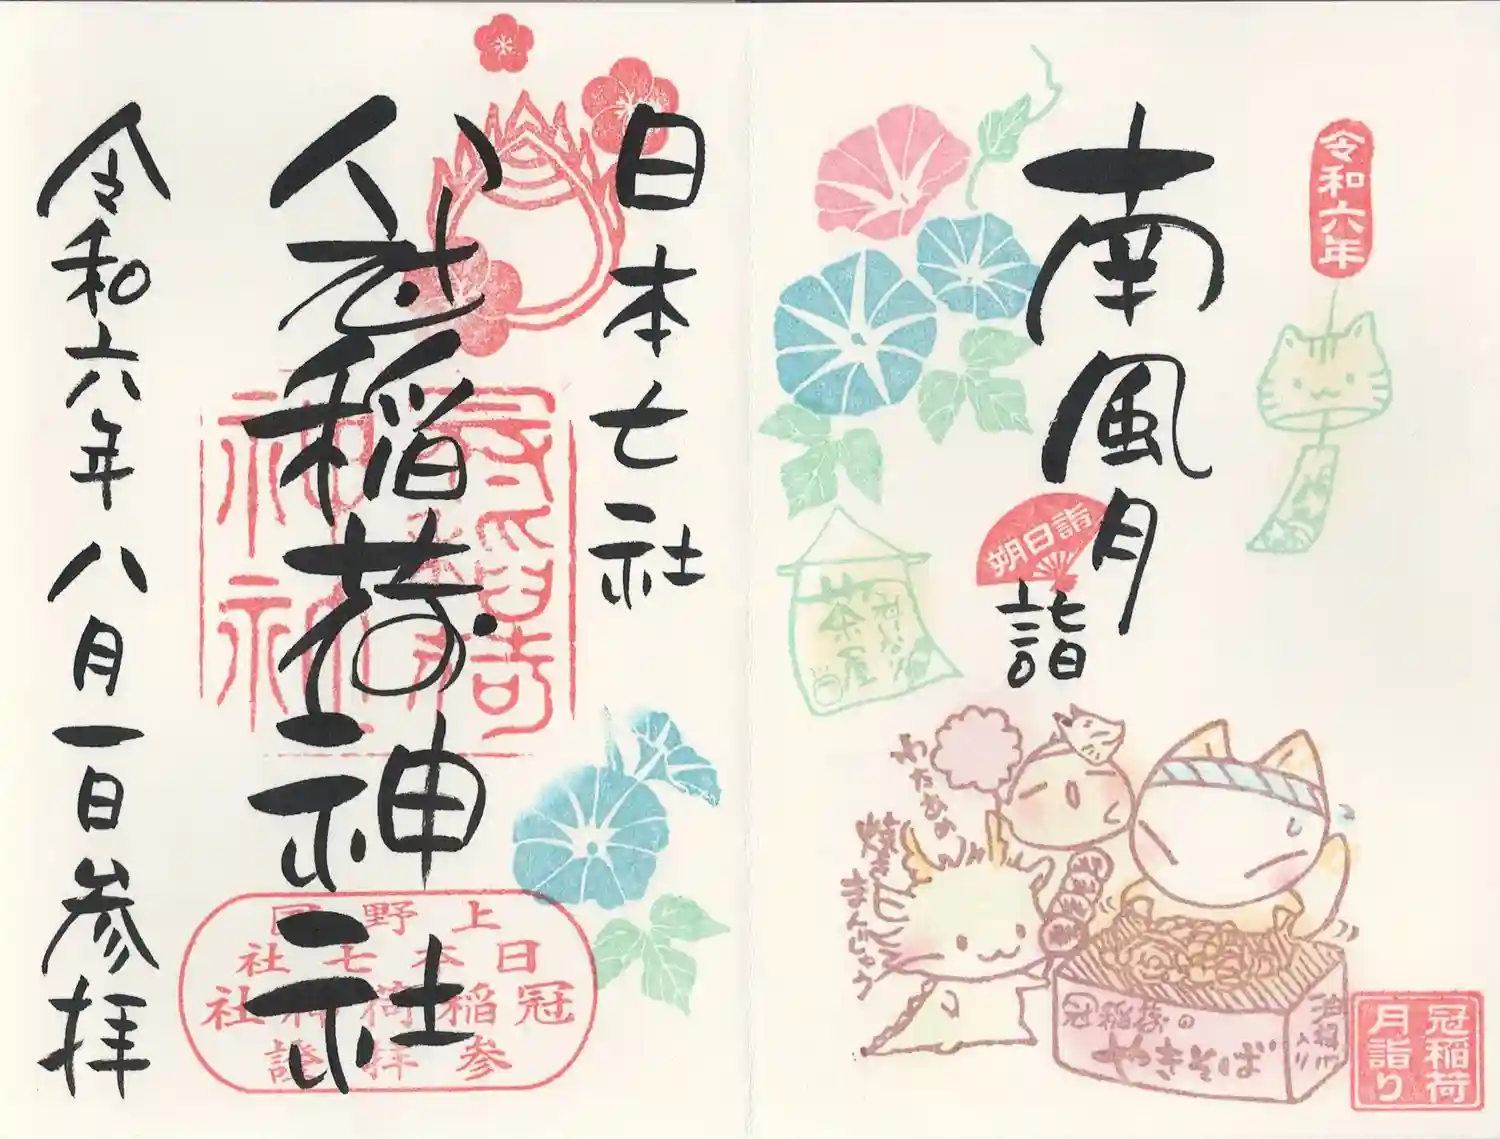 令和六年
南風月
朔日詣
詣
茶屋
わたあめ
焼き
まんじゅう
冠稲荷の
やきそば
入り
冠稲荷
月詣り
日本七社
冠稲荷神社
上野国
日本七社
冠稲荷神社
参拝證
令和六年八月一日参拝